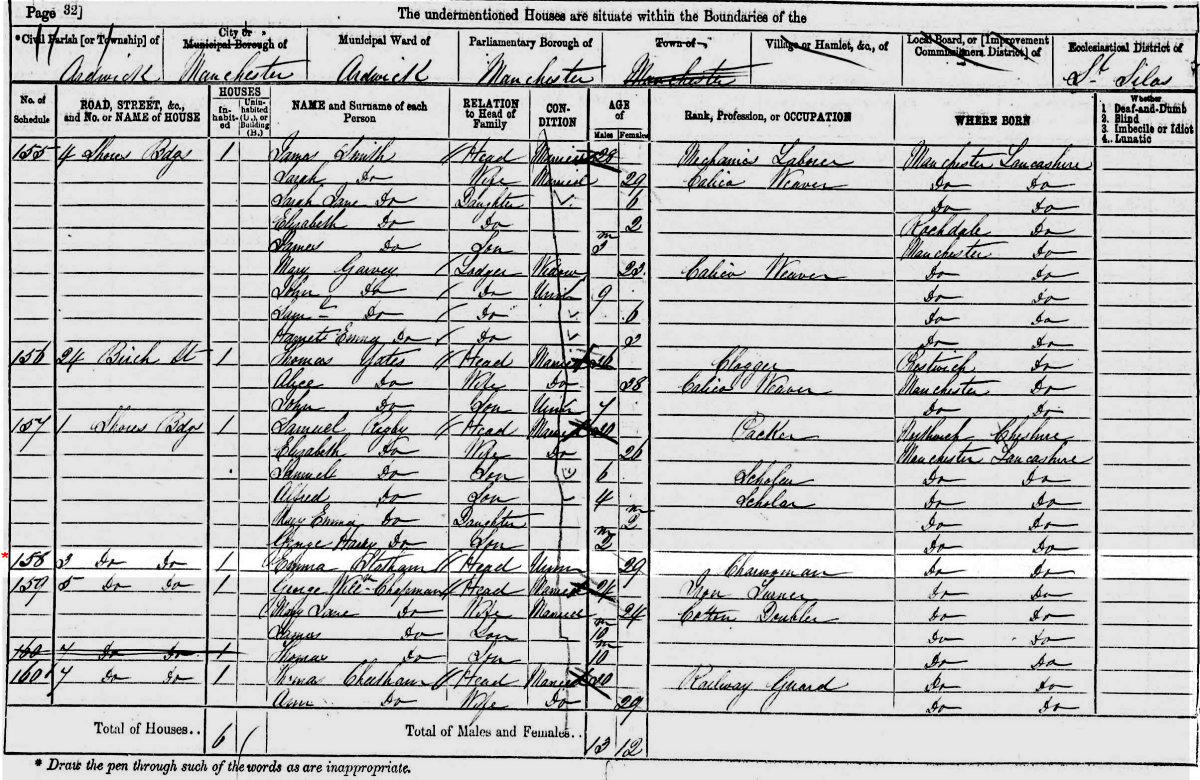 Page 32]
The undermentioned Houses are situate within the Boundaries of the
*Civil Parish [or Township] of City or Municipal Borough of Municipal Ward of Parliamentary Borough of Town of Village or Hamlet, &c., of Local Board, or [Improvement Commissioners District] of Ecclesiastical District of
Ardwick Manchester Ardwick Manchester Manchester St. Silas
No. of Schedule ROAD, STREET, &c., and No. or NAME of HOUSE HOUSES Inhabited Uninhabited (U.), or Building (B.) NAME and Surname of each Person RELATION to Head of Family CONDITION AGE of Males Females Rank, Profession, or OCCUPATION WHERE BORN Whether 1 Deaf-and-Dumb 2. Blind 3. Imbecile or Idiot 4. Lunatic
155 4 Shores Bdgs 1 James Smith Head Married 28 Mechanics Laborer Manchester Lancashire
Sarah Do Wife Married 29 Calico Weaver Do Do
Sarah Jane Do Daughter 6 Do Do
Elizabeth Do Do 2 Rochdale Do
James Do Son m 3 Manchester Do
Mary Garvey Lodger Widow 23 Calico Weaver Do Do
John Do Do Unm 9 Do Do
Saml Do Do 6 Do Do
Harriet Emma Do Do 2 Do Do
156 24 Birch St 1 Thomas Yates Head Married 26 Clogger Prestwich Do
Alice Do Wife Do 28 Calico Weaver Manchester Do
John Do Son Unm 7 Do Do
157 1 Shores Bdgs 1 Samuel Rigby Head Married 30 Packer Cheshire
Elizabeth Do Wife Do 26 Manchester Lancashire
Samuel Do Son 6 Scholar Do Do
Alfred Do Son 4 Scholar Do Do
Mary Emma Do Daughter m 2 Do Do
George Harry Do Son m 2 Do Do
* 158 3 Do Do 1 Emma Head Unm 29 Charwoman Do Do
159 5 Do Do 1 George Willm Chapman Head Married 24 Iron Turner Do Do
Mary Jane Do Wife Married 24 Cotton Doubler Do Do
James Do Son m 10 Do Do
160 7 Do Do 1 Thomas Do Son m 10 Do Do
160 7 Do Do 1 Cheetham Head Married 30 Railway Guard Do Do
Ann Do Wife Do 29 Do Do
Total of Houses.. 6 Total of Males and Females.. 13 12
* Draw the pen through such of the words as are inappropriate.